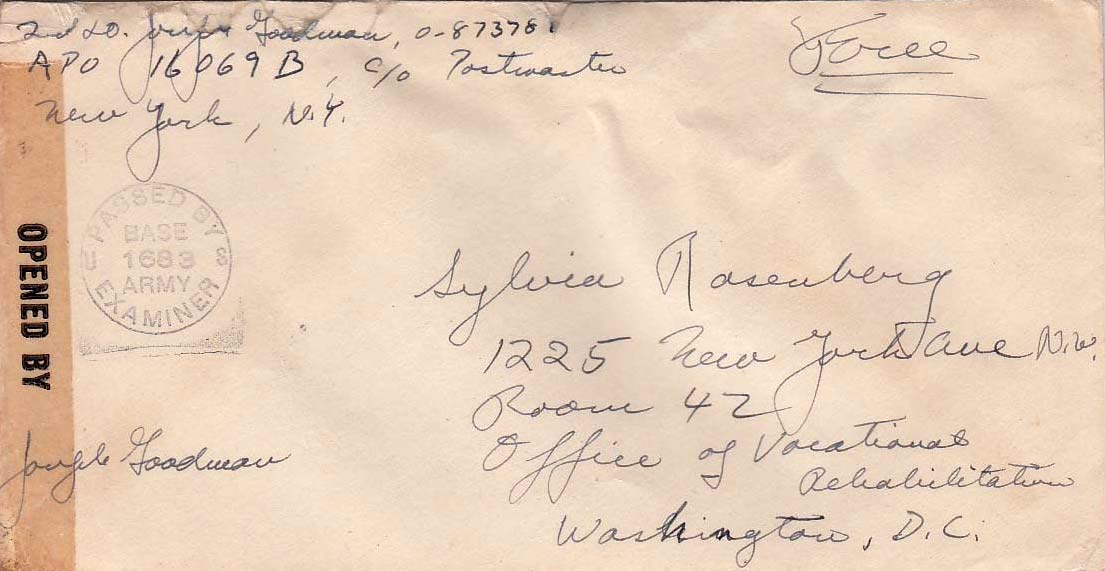 2nd Lt. Joseph Goodman, O-873781
APO 16069 B, c/o Postmaster
New York, N.Y.
Free
PASSED BY
BASE
U 1683 S
ARMY
EXAMINER
OPENED BY
Sylvia Rosenberg
1225 New York Ave N.W.
Room 42
Office of Vocational
Rehabilitation
Washington, D.C.
Joseph Goodman